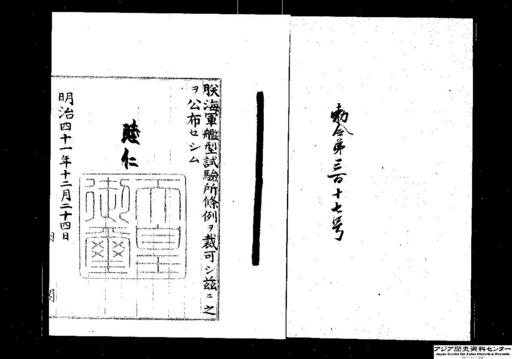 勅令第三百十七号
朕海軍艦型試驗所條例ヲ裁可シ茲ニ之
ヲ公布セシム
睦仁
天皇
御璽
明治四十一年十二月二十四日
アジア歴史資料センター
Japan Center for Asian Historical Records